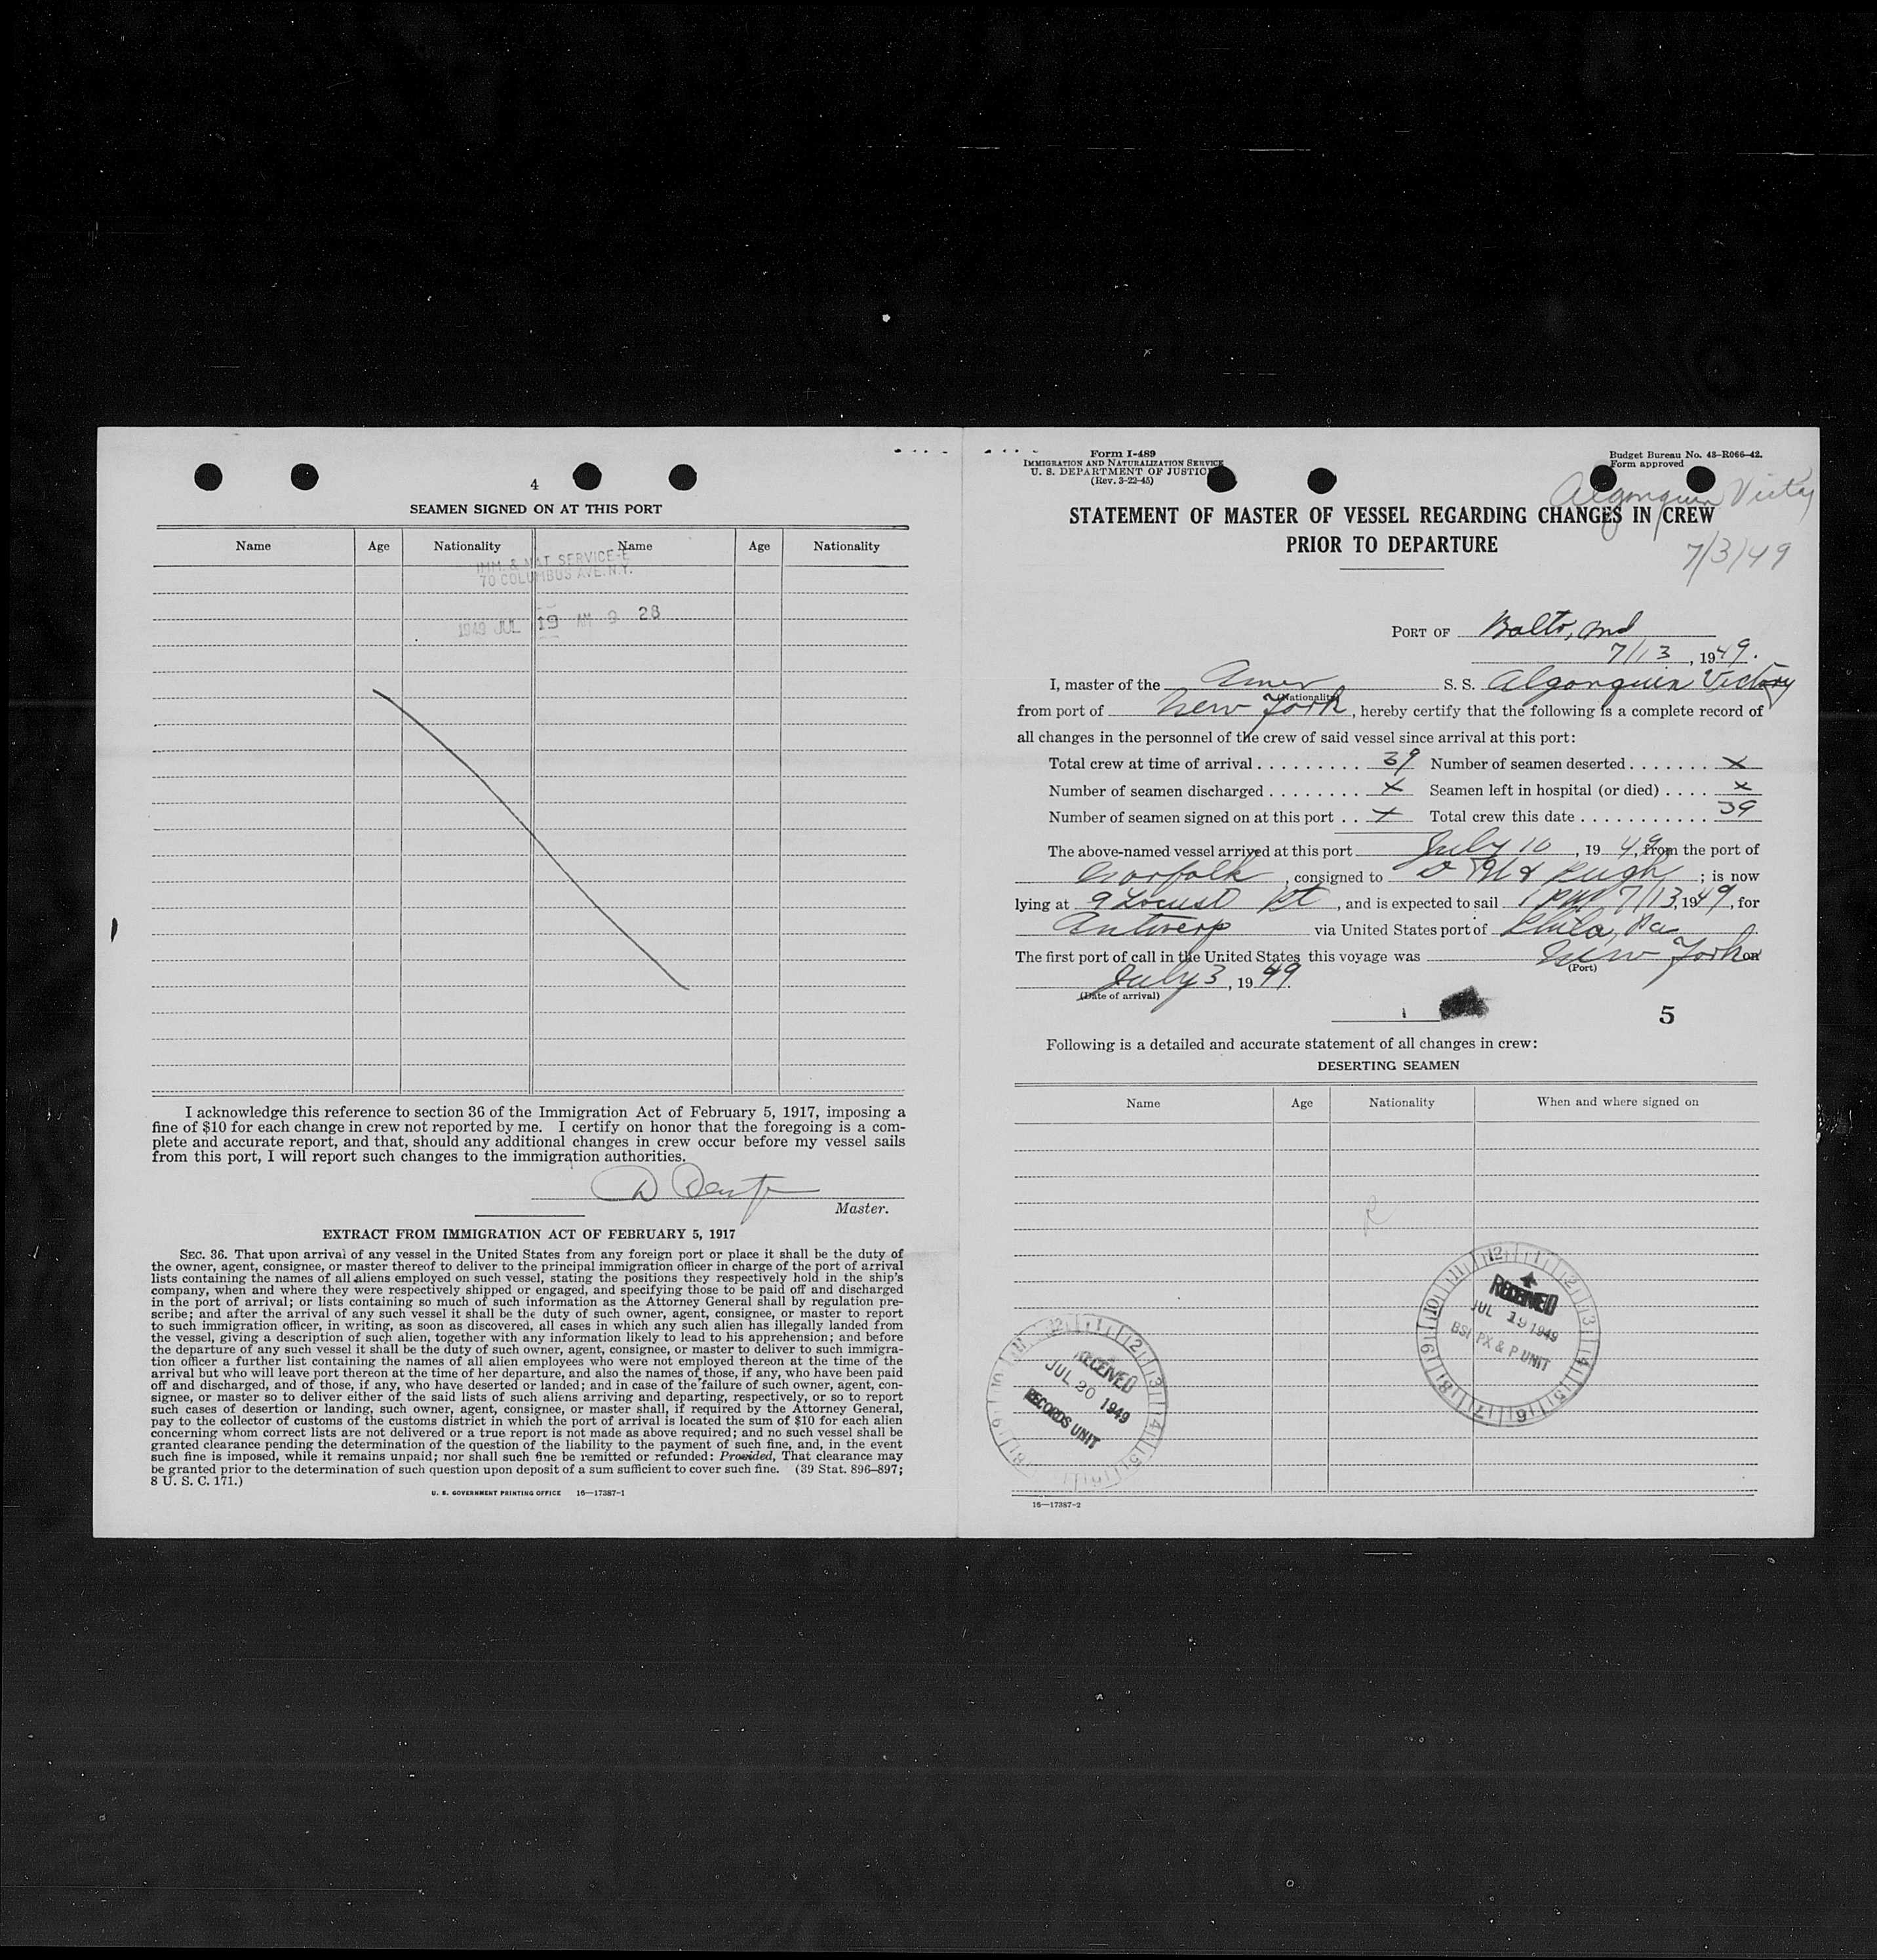 4
SEAMEN SIGNED ON AT THIS PORT
Name Age Nationality Name Age Nationality
IMM. & NAT. SERVICE-E
70 COLUMBUS AVE. N.Y.
1949 JUL 19 AM 9 28
I acknowledge this reference to section 36 of the Immigration Act of February 5, 1917, imposing a
fine of $10 for each change in crew not reported by me. I certify on honor that the foregoing is a com-
plete and accurate report, and that, should any additional changes in crew occur before my vessel sails
from this port, I will report such changes to the immigration authorities.
D
Master.
EXTRACT FROM IMMIGRATION ACT OF FEBRUARY 5, 1917
SEC. 36. That upon arrival of any vessel in the United States from any foreign port or place it shall be the duty of
the owner, agent, consignee, or master thereof to deliver to the principal immigration officer in charge of the port of arrival
lists containing the names of all aliens employed on such vessel, stating the positions they respectively hold in the ship's
company, when and where they were respectively shipped or engaged, and specifying those to be paid off and discharged
in the port of arrival; or lists containing so much of such information as the Attorney General shall by regulation pre-
scribe; and after the arrival of any such vessel it shall be the duty of such owner, agent, consignee, or master to report
to such immigration officer, in writing, as soon as discovered, all cases in which any such alien has illegally landed from
the vessel, giving a description of such alien, together with any information likely to lead to his apprehension; and before
the departure of any such vessel it shall be the duty of such owner, agent, consignee, or master to deliver to such immigra-
tion officer a further list containing the names of all alien employees who were not employed thereon at the time of the
arrival but who will leave port thereon at the time of her departure, and also the names of those, if any, who have been paid
off and discharged, and of those, if any, who have deserted or landed; and in case of the failure of such owner, agent, con-
signee, or master so to deliver either of the said lists of such aliens arriving and departing, respectively, or so to report
such cases of desertion or landing, such owner, agent, consignee, or master shall, if required by the Attorney General,
pay to the collector of customs of the customs district in which the port of arrival is located the sum of $10 for each alien
concerning whom correct lists are not delivered or a true report is not made as above required; and no such vessel shall be
granted clearance pending the determination of the question of the liability to the payment of such fine, and, in the event
such fine is imposed, while it remains unpaid; nor shall such fine be remitted or refunded: Provided, That clearance may
be granted prior to the determination of such question upon deposit of a sum sufficient to cover such fine. (39 Stat. 896-897;
8 U. S. C. 171.)
U. S. GOVERNMENT PRINTING OFFICE 16—17387-1
Form I-489
IMMIGRATION AND NATURALIZATION SERVICE
U. S. DEPARTMENT OF JUSTICE
(Rev. 3-22-45)
Budget Bureau No. 43-R066-42.
Form approved
Algonquin Victory
STATEMENT OF MASTER OF VESSEL REGARDING CHANGES IN CREW
PRIOR TO DEPARTURE
7/3/49
PORT OF Balto, Md
7/13, 1949.
I, master of the Amer S. S. Algonquin Victory
(Nationality)
from port of New York, hereby certify that the following is a complete record of
all changes in the personnel of the crew of said vessel since arrival at this port:
Total crew at time of arrival 39 Number of seamen deserted X
Number of seamen discharged X Seamen left in hospital (or died) X
Number of seamen signed on at this port X Total crew this date 39
The above-named vessel arrived at this port July 10, 1949, from the port of
Norfolk, consigned to Pugh; is now
lying at 9 Locust Pt, and is expected to sail 1 PM 7/13, 1949, for
Antwerp via United States port of Phila, Pa
The first port of call in the United States this voyage was New York on
(Port)
July 3, 1949.
(Date of arrival)
5
Following is a detailed and accurate statement of all changes in crew:
DESERTING SEAMEN
Name Age Nationality When and where signed on
R
12 1 2 3 4 5 6 7 8 9 10 11
RECEIVED
JUL 19 1949
BSI PX & P UNIT
RECEIVED
JUL 20 1949
RECORDS UNIT
16—17387-2